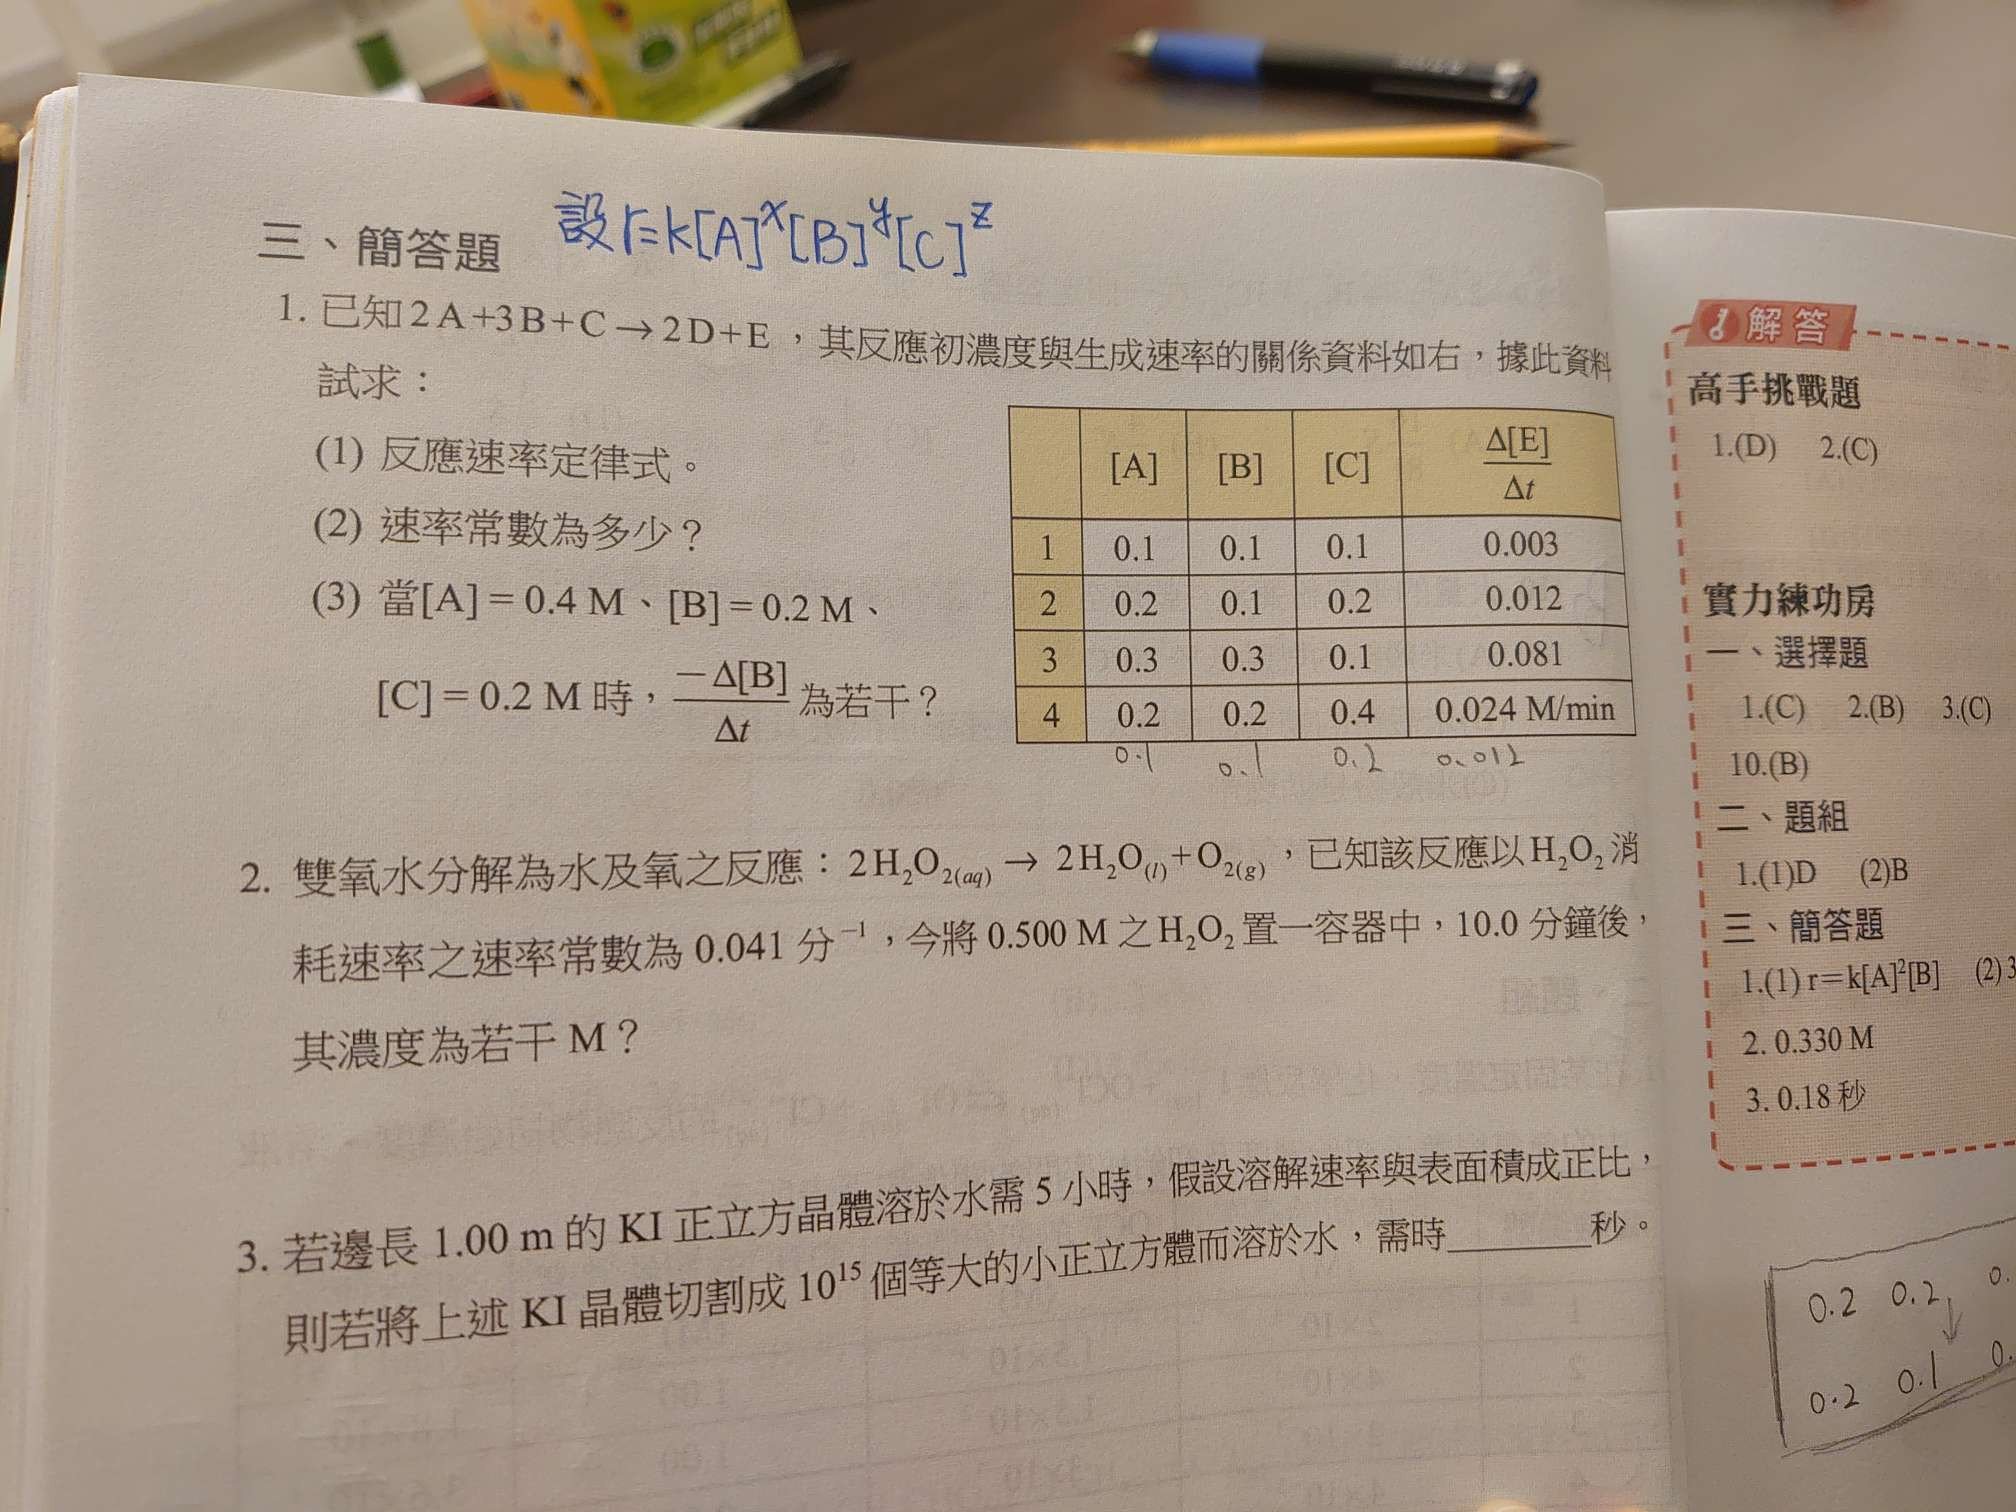 三、簡答題
設r=k[A]^x[B]^y[C]^z
1. 已知2A+3B+C→2D+E,其反應初濃度與生成速率的關係資料如右,據此資料
試求:
(1) 反應速率定律式。
(2) 速率常數為多少?
(3) 當[A]=0.4 M、[B]=0.2 M、
[C]=0.2 M 時,−Δ[B]/Δt 為若干?
[A] [B] [C] Δ[E]/Δt
1 0.1 0.1 0.1 0.003
2 0.2 0.1 0.2 0.012
3 0.3 0.3 0.1 0.081
4 0.2 0.2 0.4 0.024 M/min
0.1 0.1 0.2 0.012
2. 雙氧水分解為水及氧之反應:2H₂O₂(aq) → 2H₂O(l)+O₂(g),已知該反應以H₂O₂消
耗速率之速率常數為 0.041 分⁻¹,今將 0.500 M 之H₂O₂置一容器中,10.0 分鐘後,
其濃度為若干 M?
3. 若邊長 1.00 m 的 KI 正立方晶體溶於水需 5 小時,假設溶解速率與表面積成正比,
則若將上述 KI 晶體切割成 10¹⁵ 個等大的小正立方體而溶於水,需時______秒。
解答
高手挑戰題
1.(D) 2.(C)
實力練功房
一、選擇題
1.(C) 2.(B) 3.(C)
10.(B)
二、題組
1.(1)D (2)B
三、簡答題
1.(1) r=k[A]²[B] (2)3
2. 0.330 M
3. 0.18 秒
0.2 0.2 0.
0.2 0.1 0.